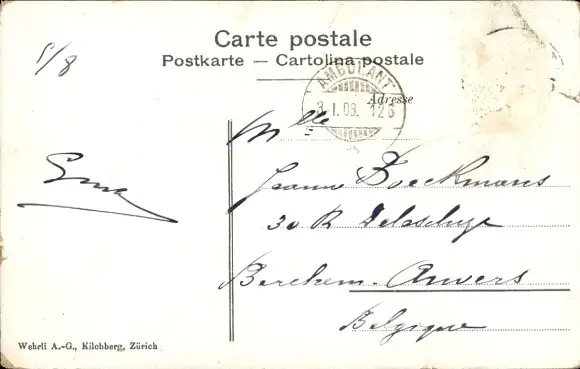 Carte postale
Postkarte — Cartolina postale
5/8
AMBULANT
3. I. 08. 126
Adresse
Mlle
Jeanne Boeckmans
30 R Delescluze
Berchem-Anvers
Belgique
Wehrli A.-G., Kilchberg, Zürich